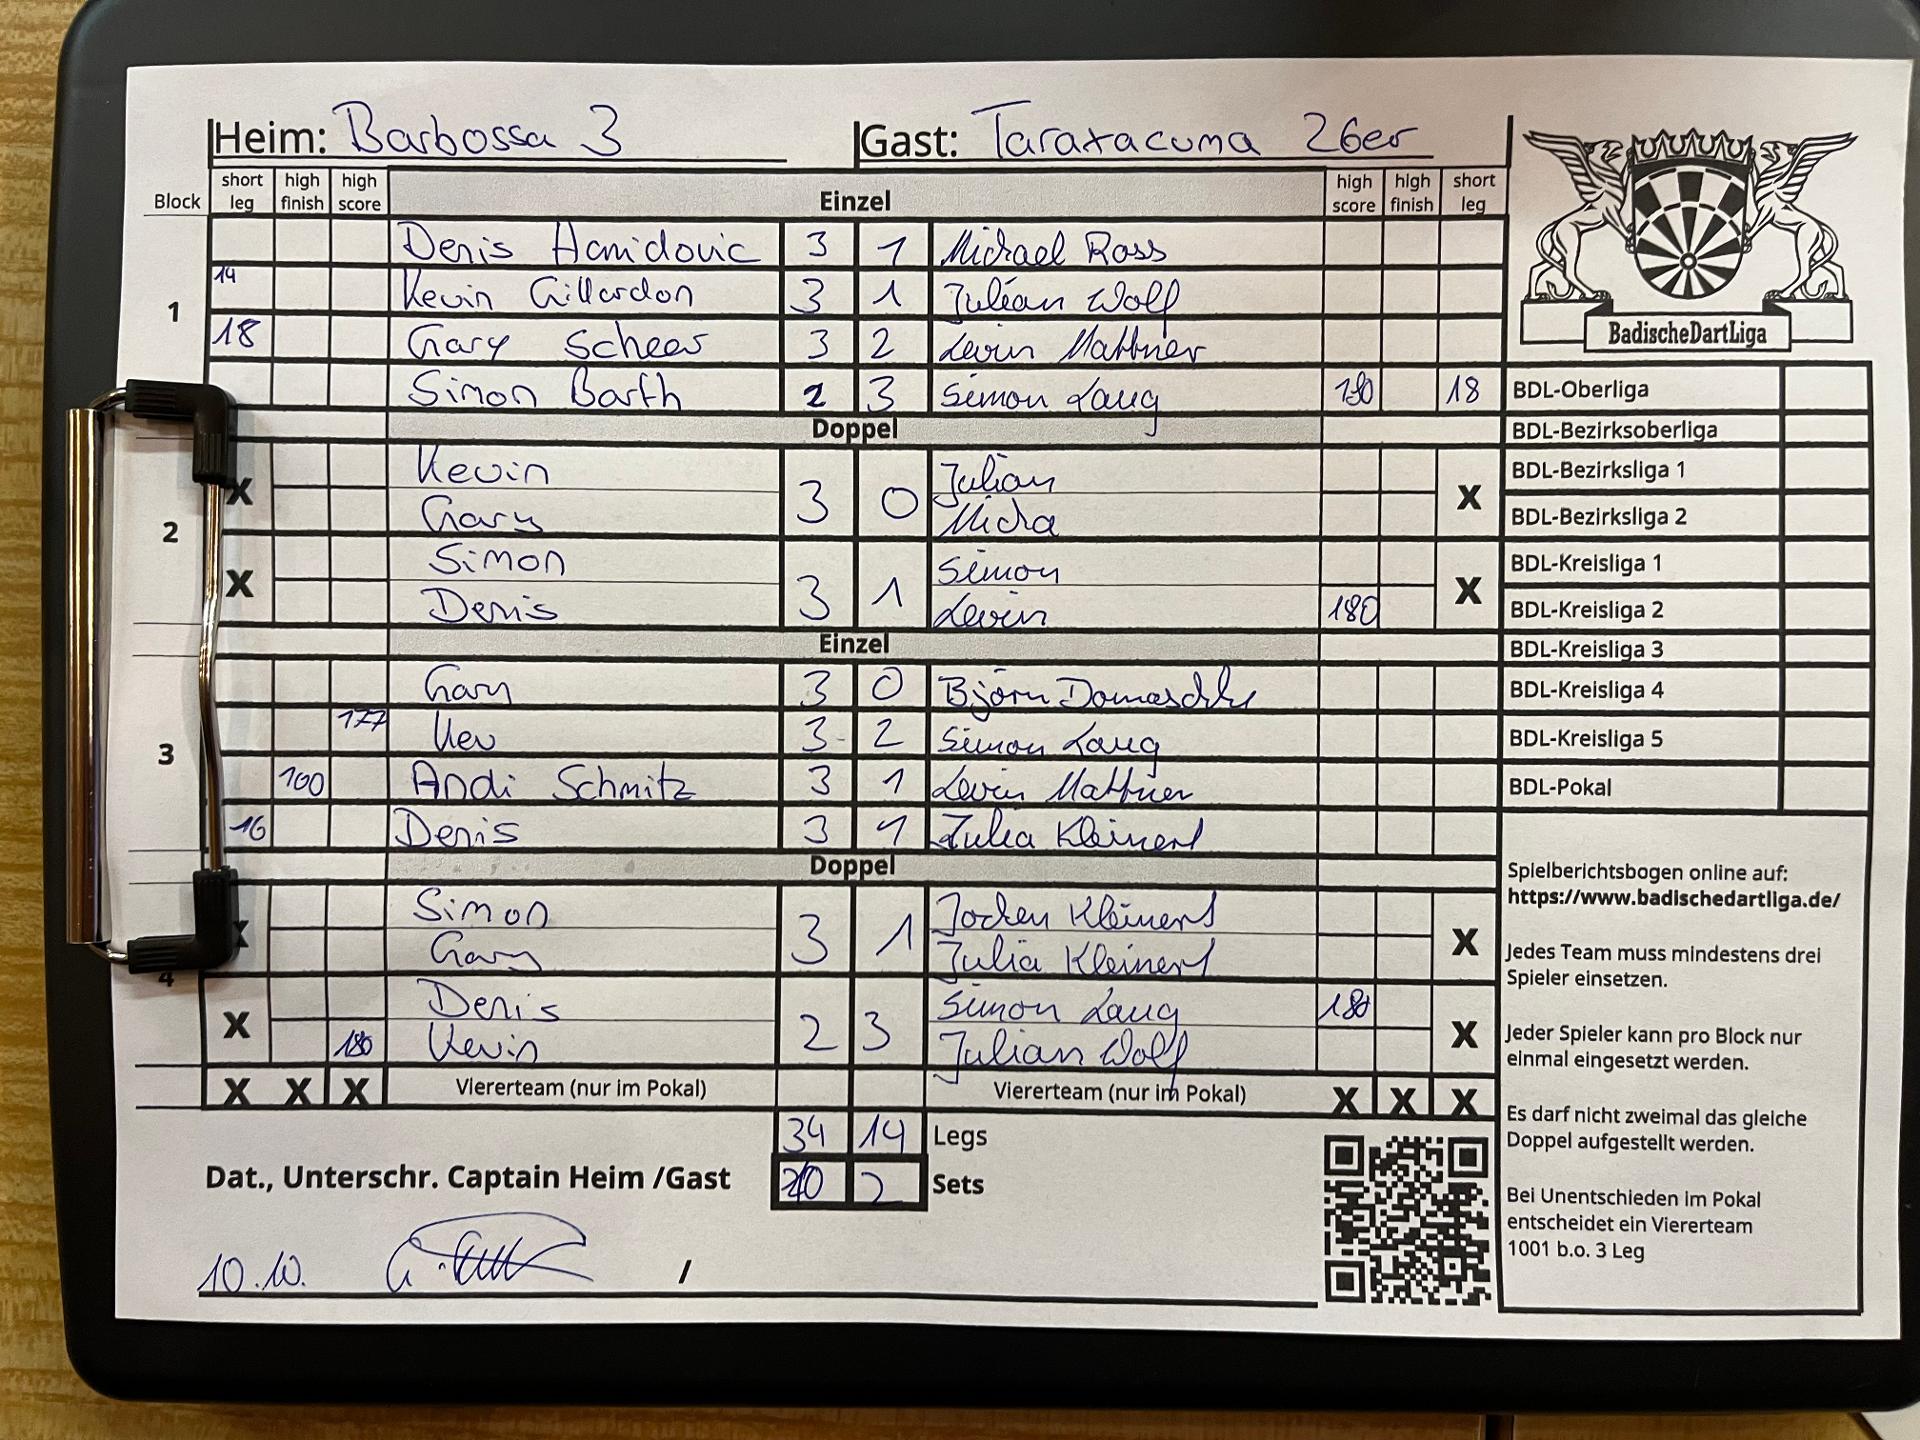 Heim: Barbossa 3 Gast: Taraxacuma 26er
Block short leg high finish high score Einzel high score high finish short leg
1
Denis Hamidovic 3 1 Michael Ross
14 Kevin Gillardon 3 1 Julian Wolf
18 Gary Scheer 3 2 Levin Mattner
Simon Barth 2 3 Simon Laug 180 18
Doppel
2
Kevin Julian
X 3 0 X
Gary Micha
Simon Simon
X 3 1 X
Denis Levin 180
Einzel
3
Gary 3 0 Björn Domaschk
177 Kev 3 2 Simon Laug
100 Andi Schmitz 3 1 Levin Mattner
16 Denis 3 1 Julia Kleinert
Doppel
4
Simon Jochen Kleinert
X 3 1 X
Gary Julia Kleinert
Denis Simon Laug 180
X 2 3 X
180 Kevin Julian Wolf
X X X Viererteam (nur im Pokal) Viererteam (nur im Pokal) X X X
34 14 Legs
10 2 Sets
Dat., Unterschr. Captain Heim /Gast
10.10. /
BadischeDartLiga
BDL-Oberliga
BDL-Bezirksoberliga
BDL-Bezirksliga 1
BDL-Bezirksliga 2
BDL-Kreisliga 1
BDL-Kreisliga 2
BDL-Kreisliga 3
BDL-Kreisliga 4
BDL-Kreisliga 5
BDL-Pokal
Spielberichtsbogen online auf:
https://www.badischedartliga.de/
Jedes Team muss mindestens drei
Spieler einsetzen.
Jeder Spieler kann pro Block nur
einmal eingesetzt werden.
Es darf nicht zweimal das gleiche
Doppel aufgestellt werden.
Bei Unentschieden im Pokal
entscheidet ein Viererteam
1001 b.o. 3 Leg